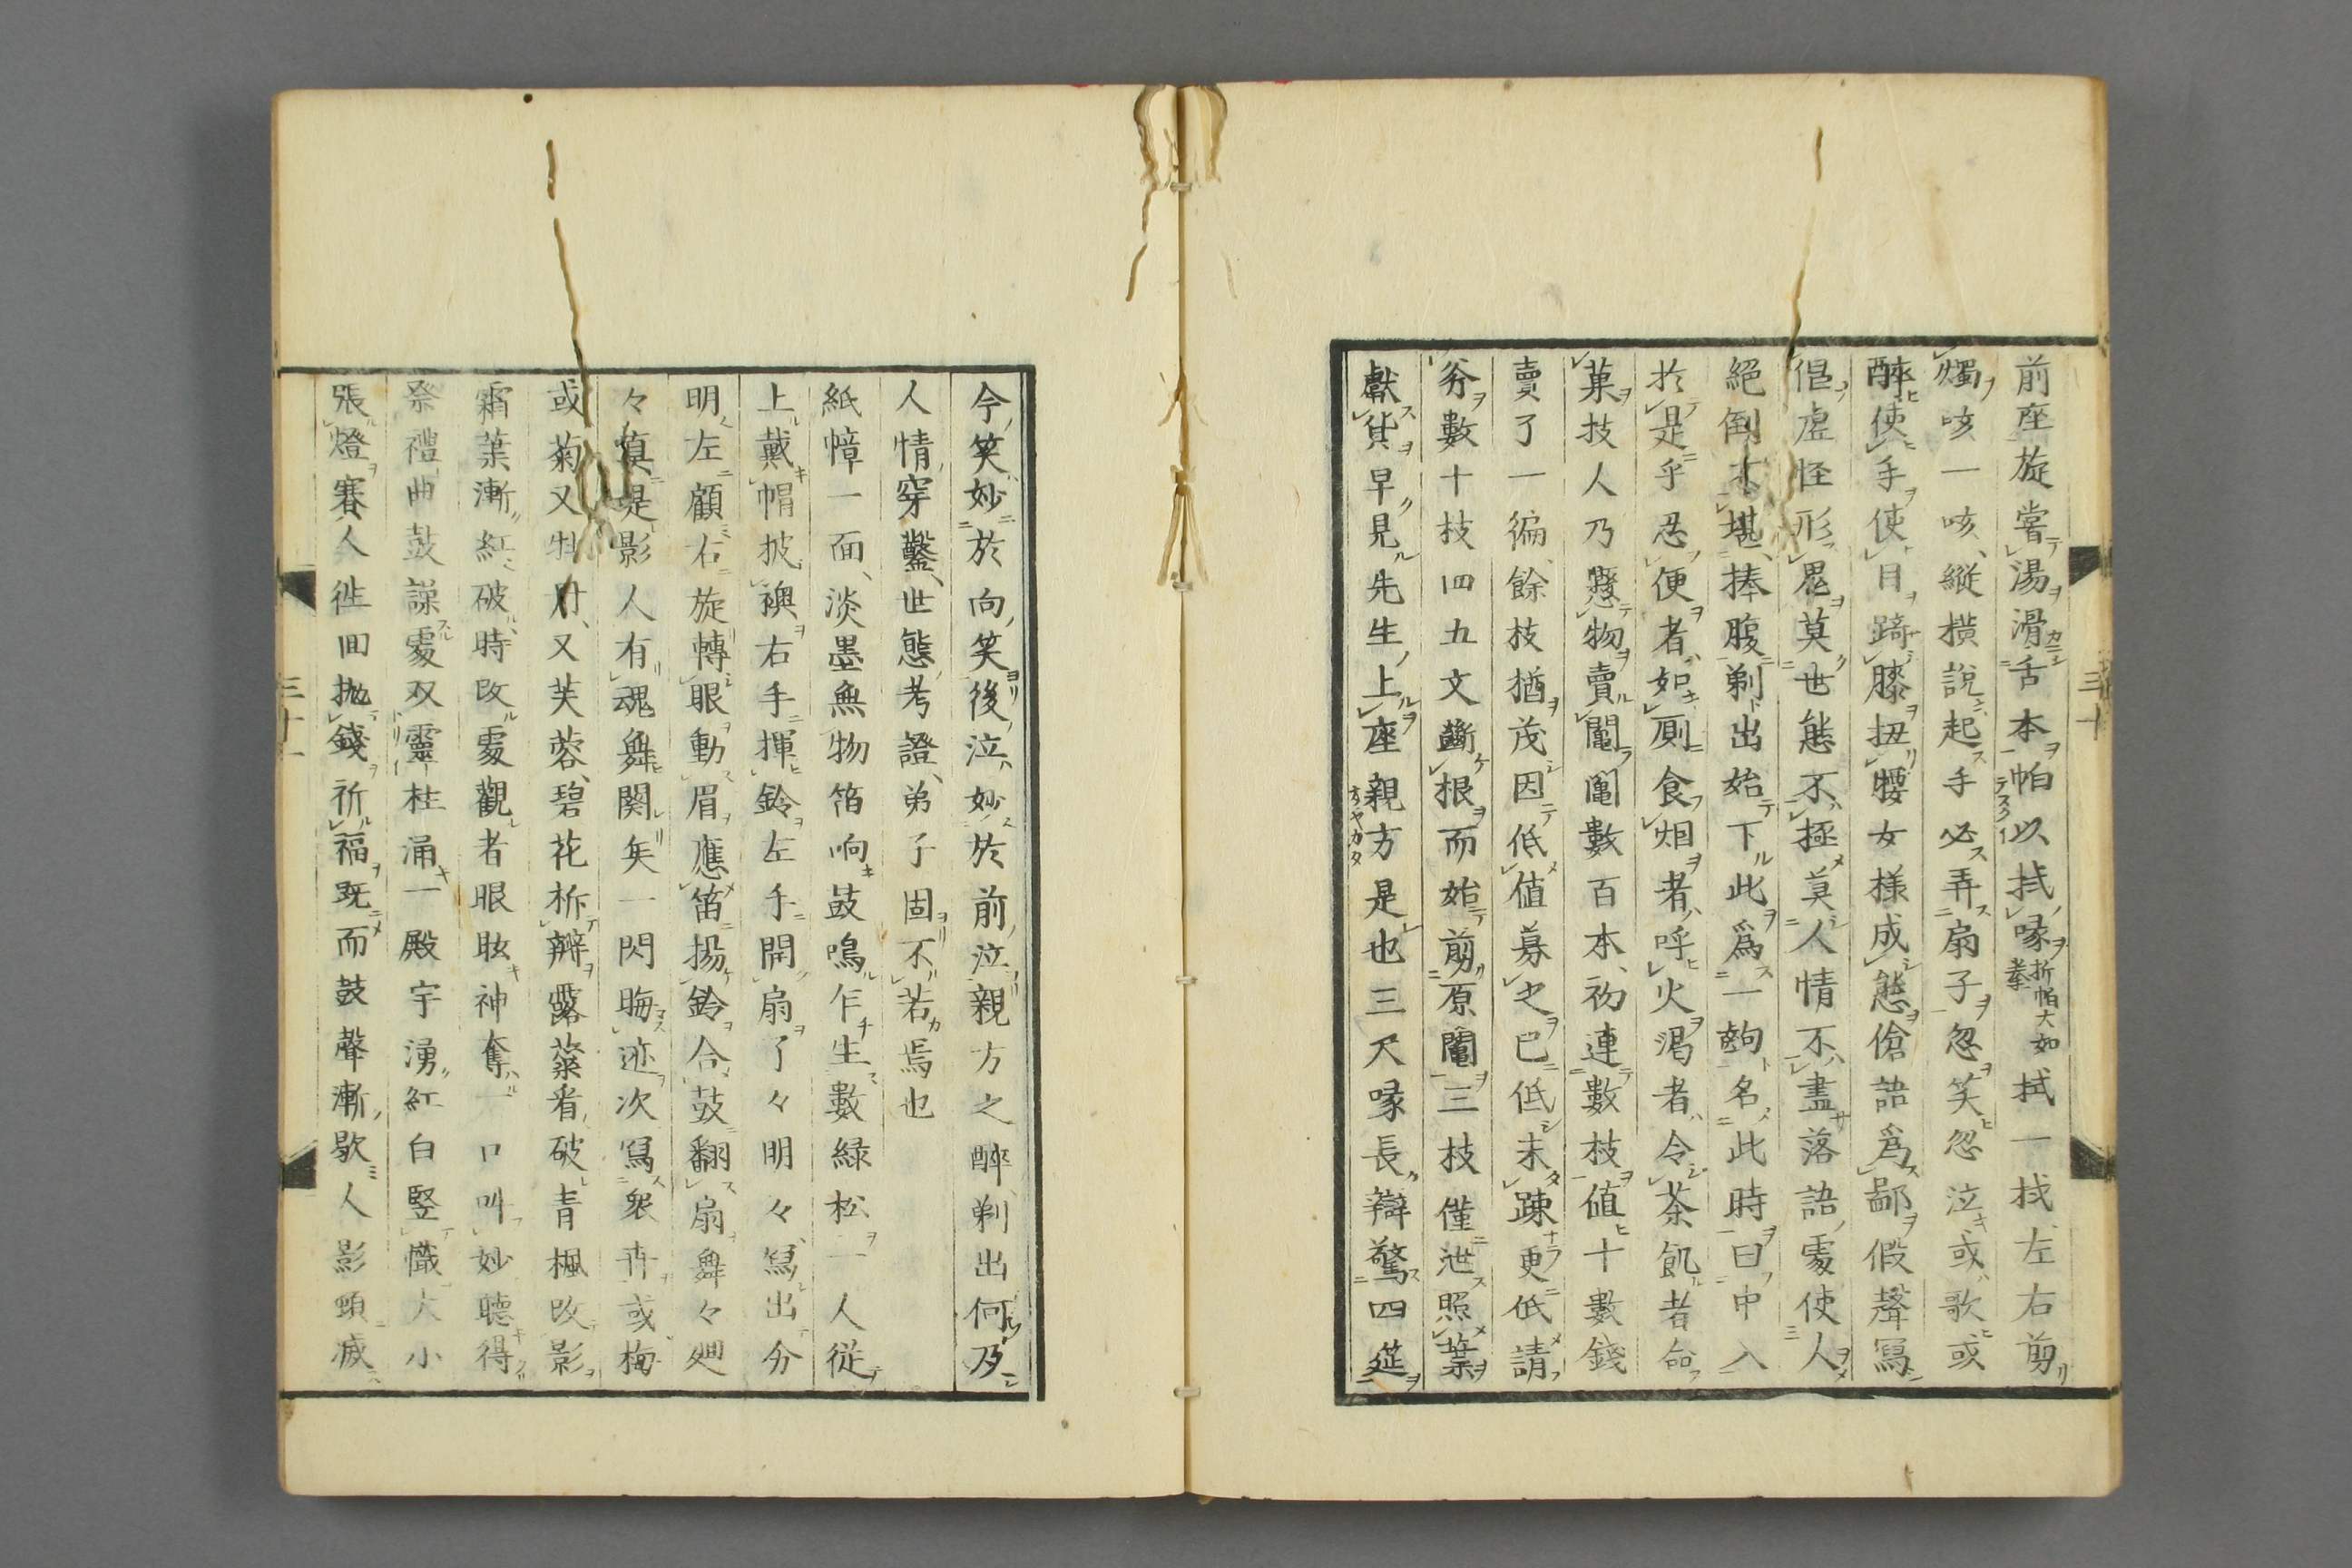 前座旋嘗湯滑舌本帕以拭喙折帕大如拳拭一拭左右剪
燭咳一咳縱橫說起手必弄扇子忽笑忽泣或歌或
醉使手使目踦膝扭腰女樣成態傖語爲鄙假聲寫
倡虛怪形鬼莫世態不極莫人情不盡落語處使人
絕倒不堪捧腹剃出始下此爲一齣名此時曰中入
於是乎忍便者如厠食烟者呼火渴者令茶飢者命
菓技人乃懸物賣鬮鬮數百本初連數枝値十數錢
賣了一徧餘枝猶茂因低値募之已低未踈更低請
券數十枝四五文斷根而始剪原鬮三枝僅泄照葉
獻貨早見先生上座親方是也三尺喙長辯驚四筵
三十
今笑妙於向笑後泣妙於前泣親方之醉剃出何及
人情穿鑿世態考證弟子固不若焉也
紙幛一面淡墨無物笛响鼓鳴乍生數緑松一人從
上戴帽披襖右手揮鈴左手開扇了々明々寫出分
明左顧右旋轉眼動眉應笛揚鈴合鼓翻扇舞々廻
々眞是影人有魂舞闋矣一閃晦迹次寫衆卉或梅
或菊又牡丹又芙蓉碧花柝辧露蘂看破青楓改影
霜葉漸紅破時改處觀者眼眩神奪一口叫妙聽得
祭禮曲鼓譟處双靈柱涌一殿宇湧紅白竪幟大小
張燈賽人徃囘抛錢祈福旣而鼓聲漸歇人影頓滅
三十一